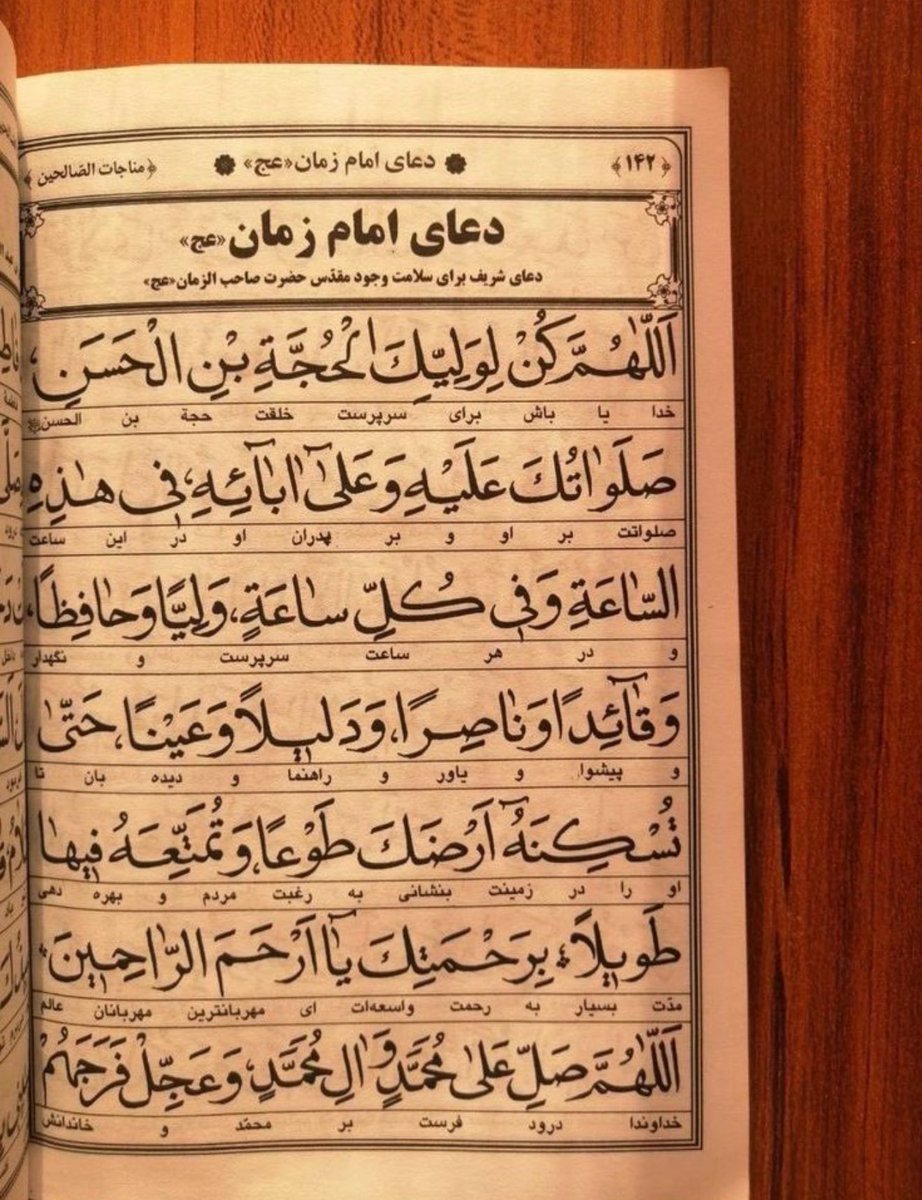 ﴿۱۴۲﴾ دعای امام زمان«عج» ﴿مناجات الصّالحین﴾
دعای امام زمان«عج»
دعای شریف برای سلامت وجود مقدّس حضرت صاحب الزمان«عج»
اَللّٰهُمَّ كُنْ لِوَلِيِّكَ الْحُجَّةِ بْنِ الْحَسَنِ،
خدا یا باش برای سرپرست خلقت حجة بن الحسن
صَلَوٰاتُكَ عَلَيْهِ وَعَلىٰٓ اٰبٰٓائِهِ، فى هٰذِهِ
صلواتت بر او و بر پدران او در این ساعت
السّٰاعَةِ وَفى كُلِّ سٰاعَةٍ، وَلِيًّا وَحٰافِظًا،
و در هر ساعت سرپرست و نگهدار
وَقٰٓائِدًا وَنٰاصِرًا، وَدَليلاً وَعَيْنًا، حَتّٰى
و پیشوا و یاور و راهنما و دیده بان تا
تُسْكِنَهُٓ اَرْضَكَ طَوْعًا، وَتُمَتِّعَهُ فيهٰا
او را در زمینت بنشانی به رغبت مردم و بهره دهی
طَويلاً، بِرَحْمَتِكَ يٰٓا اَرْحَمَ الرّٰاحِمينَ
مدّت بسیار به رحمت واسعه‌ات ای مهربانترین مهربانان عالم
اَللّٰهُمَّ صَلِّ عَلىٰ مُحَمَّدٍ وَاٰلِ مُحَمَّدٍ، وَعَجِّلْ فَرَجَهُمْ
خداوندا درود فرست بر محمّد و خاندانش